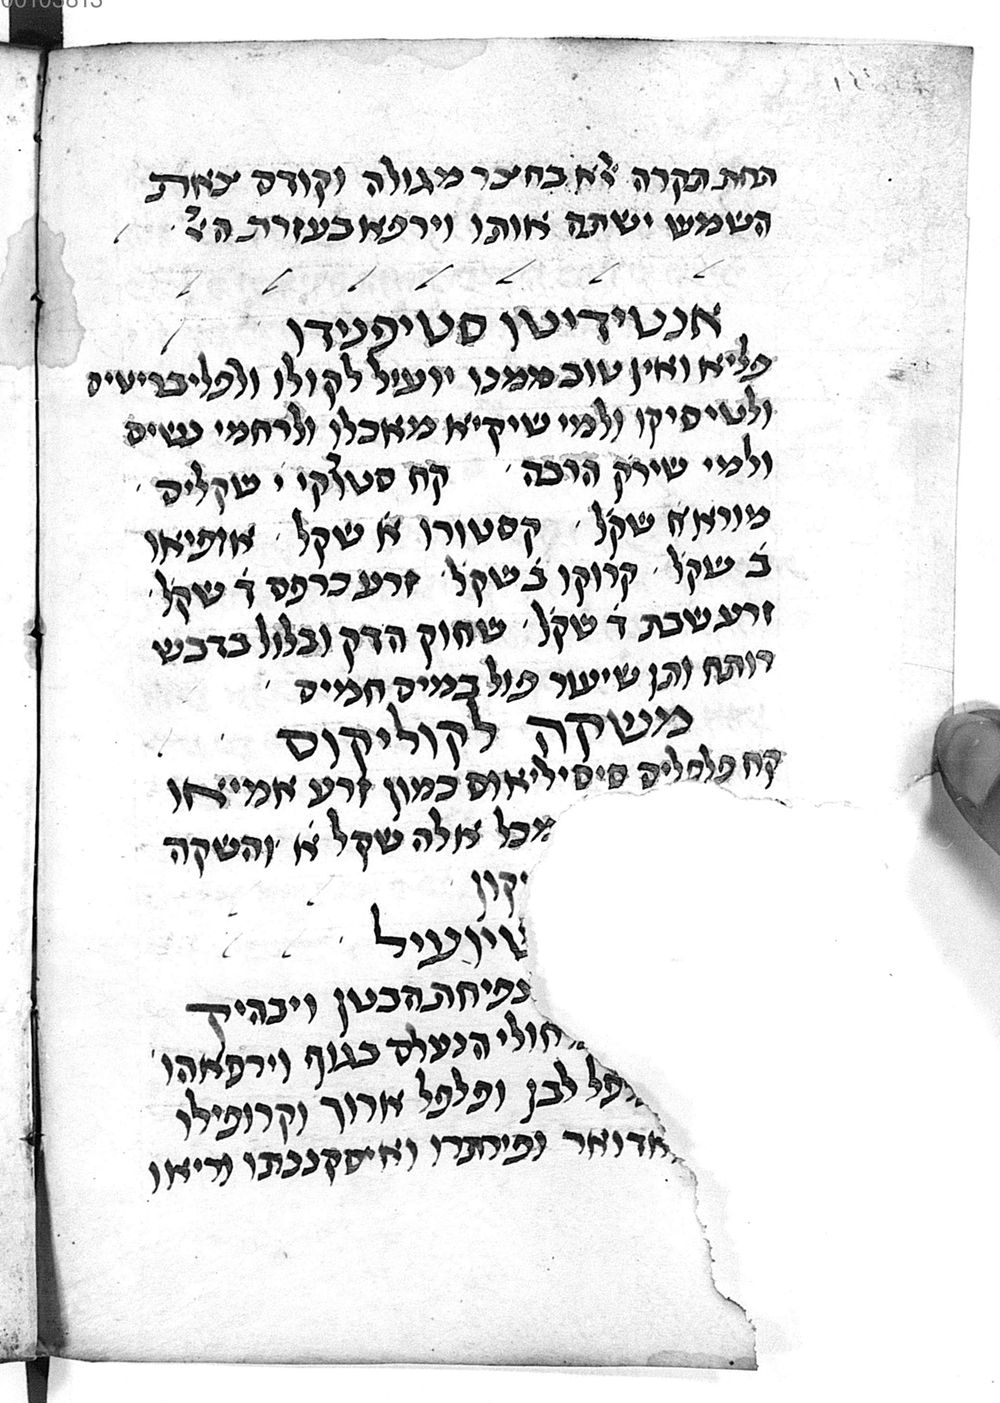 00103813
תחת תקרה לא בחצר מגולה וקודם צאת
השמש ישתה אותו וירפא בעזרת הצ'
אנטידיטן סטיפנידן
פליא ואין טוב ממנו יועיל לקולו ולפליבריטיס
ולטיסיקו ולמי שיקיא מאכלו ולרחמי נשים
ולמי שירק הרבה קח סטורקו י שקלים
מורא א שקל קסטורו א שקל אופיאו
ב שקל קרוקו ב שקל זרע כרפס ד שקל
זרע שבת ד שקל שחוק הדק ובלול בדבש
רותח ותן שיעור פול במים חמים
משקה לקוליקוס
קח פלפלים סיסיליאוס כמון זרע אמיאו
מכל אלה שקל א והשקה
שיועיל
נפיחת הבטן ויבהיק
חולי הנעלם בגוף וירפאהו
לבן ופלפל ארוך וקרופילו
ופירתרו ואיסקננתו